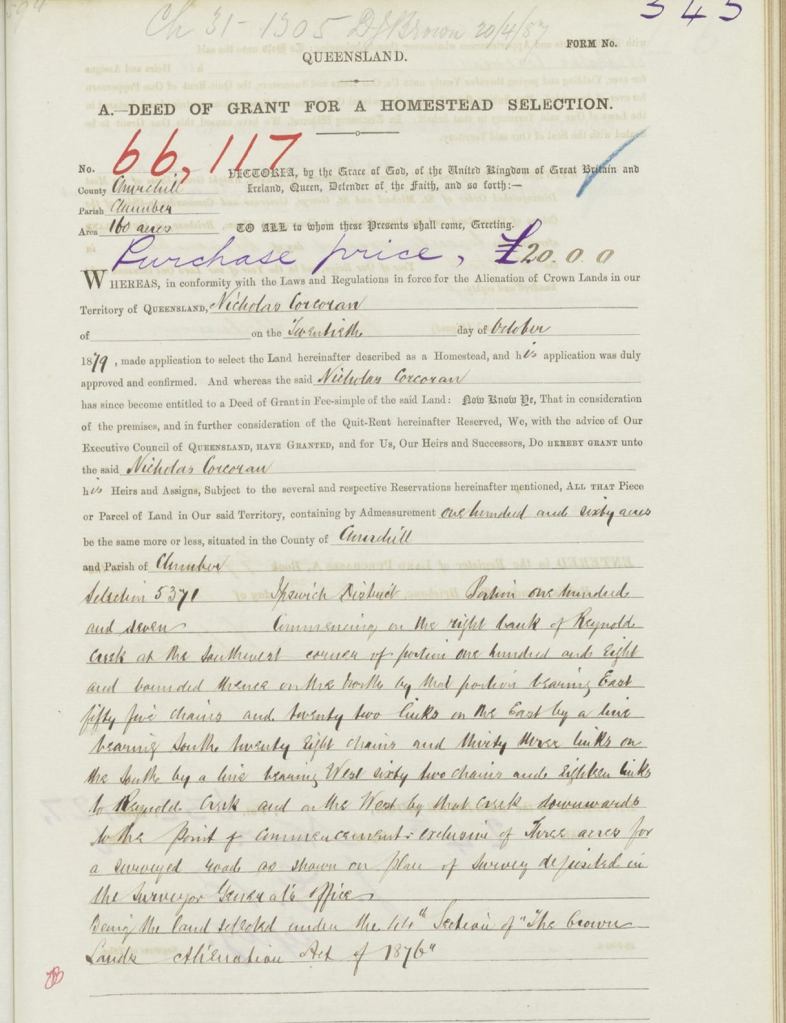 Ch 31-1305 D J Brown 20/4/87
343
FORM No.
QUEENSLAND.
A.—DEED OF GRANT FOR A HOMESTEAD SELECTION.
No. 66,117
VICTORIA, by the Grace of God, of the United Kingdom of Great Britain and
County Churchill
Ireland, Queen, Defender of the Faith, and so forth:—
Parish Clumber
Area 160 acres
TO ALL to whom these Presents shall come, Greeting.
Purchase price, £20.0.0
WHEREAS, in conformity with the Laws and Regulations in force for the Alienation of Crown Lands in our
Territory of QUEENSLAND, Nicholas Corcoran
of on the Twentieth day of October
1879, made application to select the Land hereinafter described as a Homestead, and his application was duly
approved and confirmed. And whereas the said Nicholas Corcoran
has since become entitled to a Deed of Grant in Fee-simple of the said Land: Now Know Ye, That in consideration
of the premises, and in further consideration of the Quit-Rent hereinafter Reserved, We, with the advice of Our
Executive Council of QUEENSLAND, HAVE GRANTED, and for Us, Our Heirs and Successors, DO HEREBY GRANT unto
the said Nicholas Corcoran
his Heirs and Assigns, Subject to the several and respective Reservations hereinafter mentioned, ALL THAT Piece
or Parcel of Land in Our said Territory, containing by Admeasurement one hundred and sixty acres
be the same more or less, situated in the County of Churchill
and Parish of Clumber
Selection 5371 Ipswich District Portion one hundred
and seven Commencing on the right bank of Reynolds
Creek at the Southwest corner of portion one hundred and eight
and bounded thence on the North by that portion bearing East
fifty five chains and twenty two links on the East by a line
bearing South twenty eight chains and thirty three links on
the South by a line bearing West sixty two chains and eighteen links
to Reynolds Creek and on the West by that Creek downwards
to the Point of commencement: exclusive of Three acres for
a surveyed road as shown on plan of survey deposited in
the Surveyor General's Office
Being the land selected under the 44th Section of "The Crown
Lands Alienation Act of 1876"